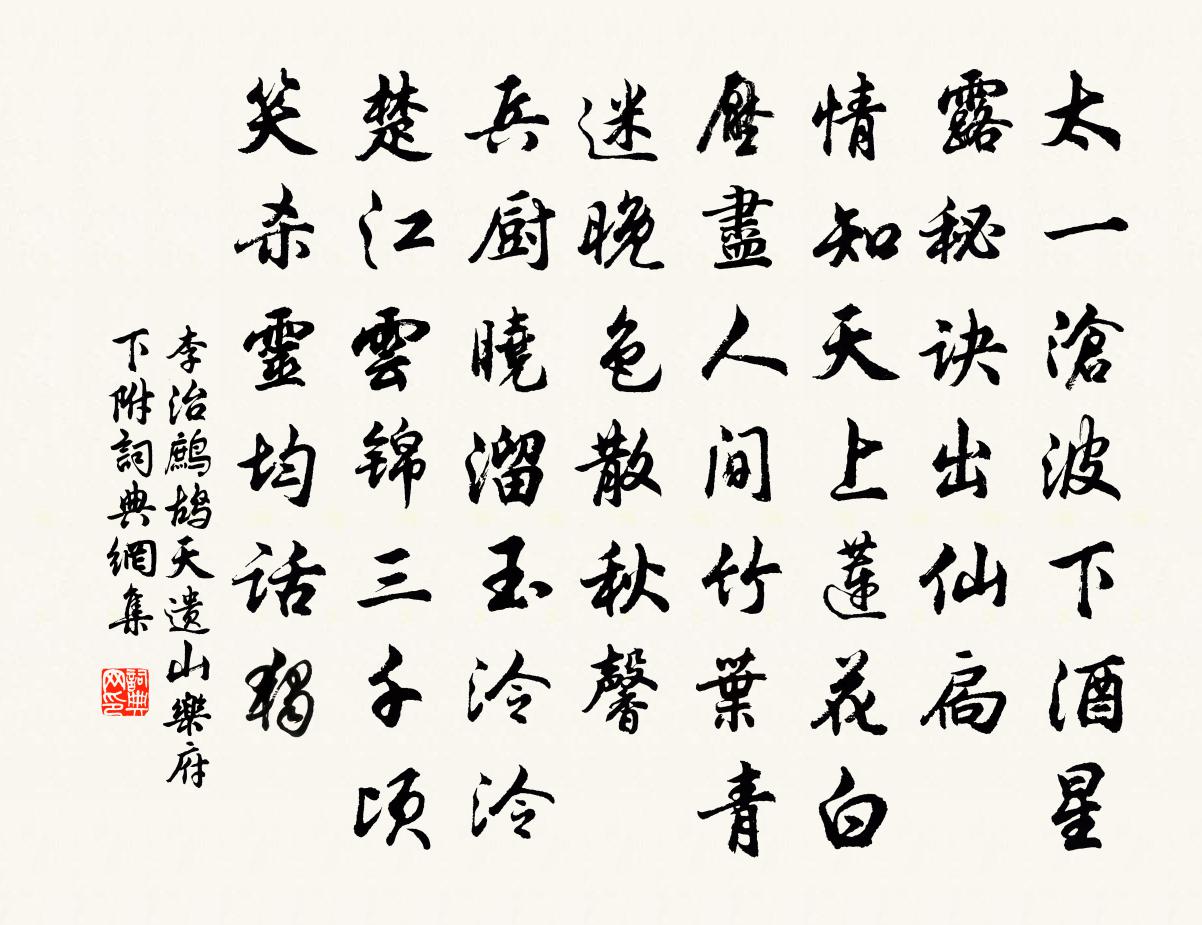 太一滄波下酒星
露秘訣出仙扃
情知天上蓮花白
壓盡人間竹葉青
迷晚色散秋馨
兵厨曉溜玉泠泠
楚江雲錦三千頃
笑杀靈均話獨
李治鷓鴣天遺山樂府
下附詞典網集
詞典网印